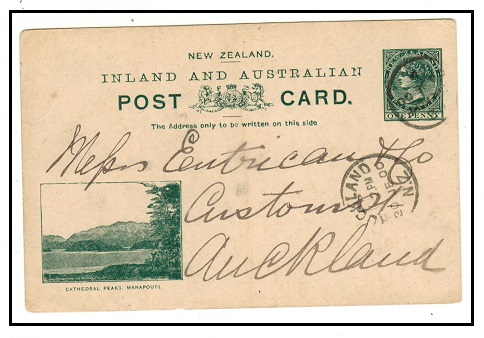 NEW ZEALAND.
INLAND AND AUSTRALIAN
POST CARD.
ONE PENNY
The Address only to be written on this side
Messrs Entrican & Co
Customs St
Auckland
CATHEDRAL PEAKS, MANAPOURI.